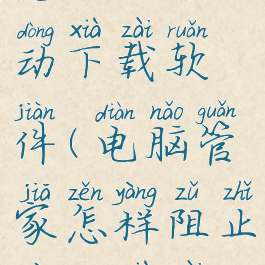 dòng xià zài ruǎn
动下载软
jiàn diàn nǎo guǎn
件(电脑管
jiā zěn yàng zǔ zhǐ
家怎样阻止